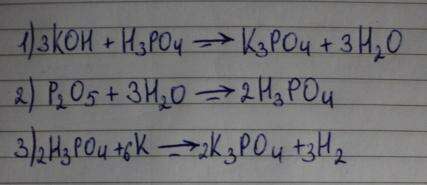 1) 3KOH + H₃PO₄ ⟶ K₃PO₄ + 3H₂O
2) P₂O₅ + 3H₂O ⟶ 2H₃PO₄
3) 2H₃PO₄ + 6K ⟶ 2K₃PO₄ + 3H₂